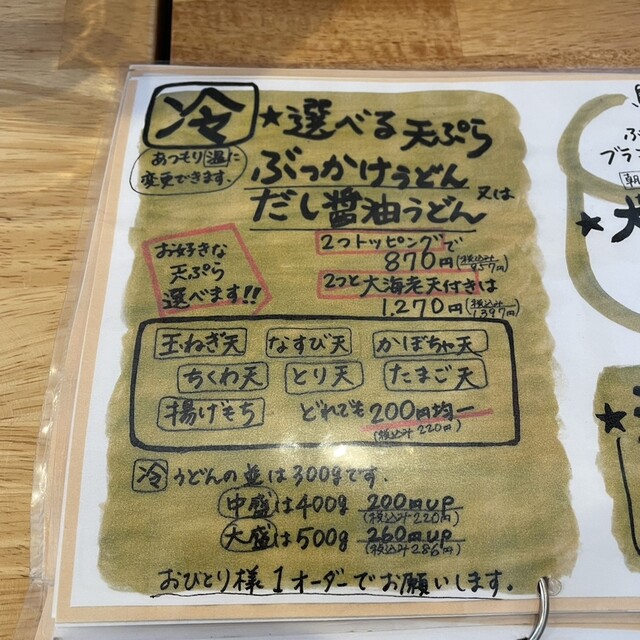 冷 ★選べる天ぷら
あつもり温に
変更できます。
ぶっかけうどん
又は
だし醤油うどん
お好きな
天ぷら
選べます!!
2つトッピングで
870円(税込み957円)
2つと大海老天付きは
1.270円(税込み1.397円)
玉ねぎ天 なすび天 かぼちゃ天
ちくわ天 とり天 たまご天
揚げもち どれでも200円均一
(税込み220円)
冷うどんの並は300gです。
中盛は400g 200円UP
(税込み220円)
大盛は500g 260円UP
(税込み286円)
おひとり様1オーダーでお願いします。
ブラン
朝
★
★